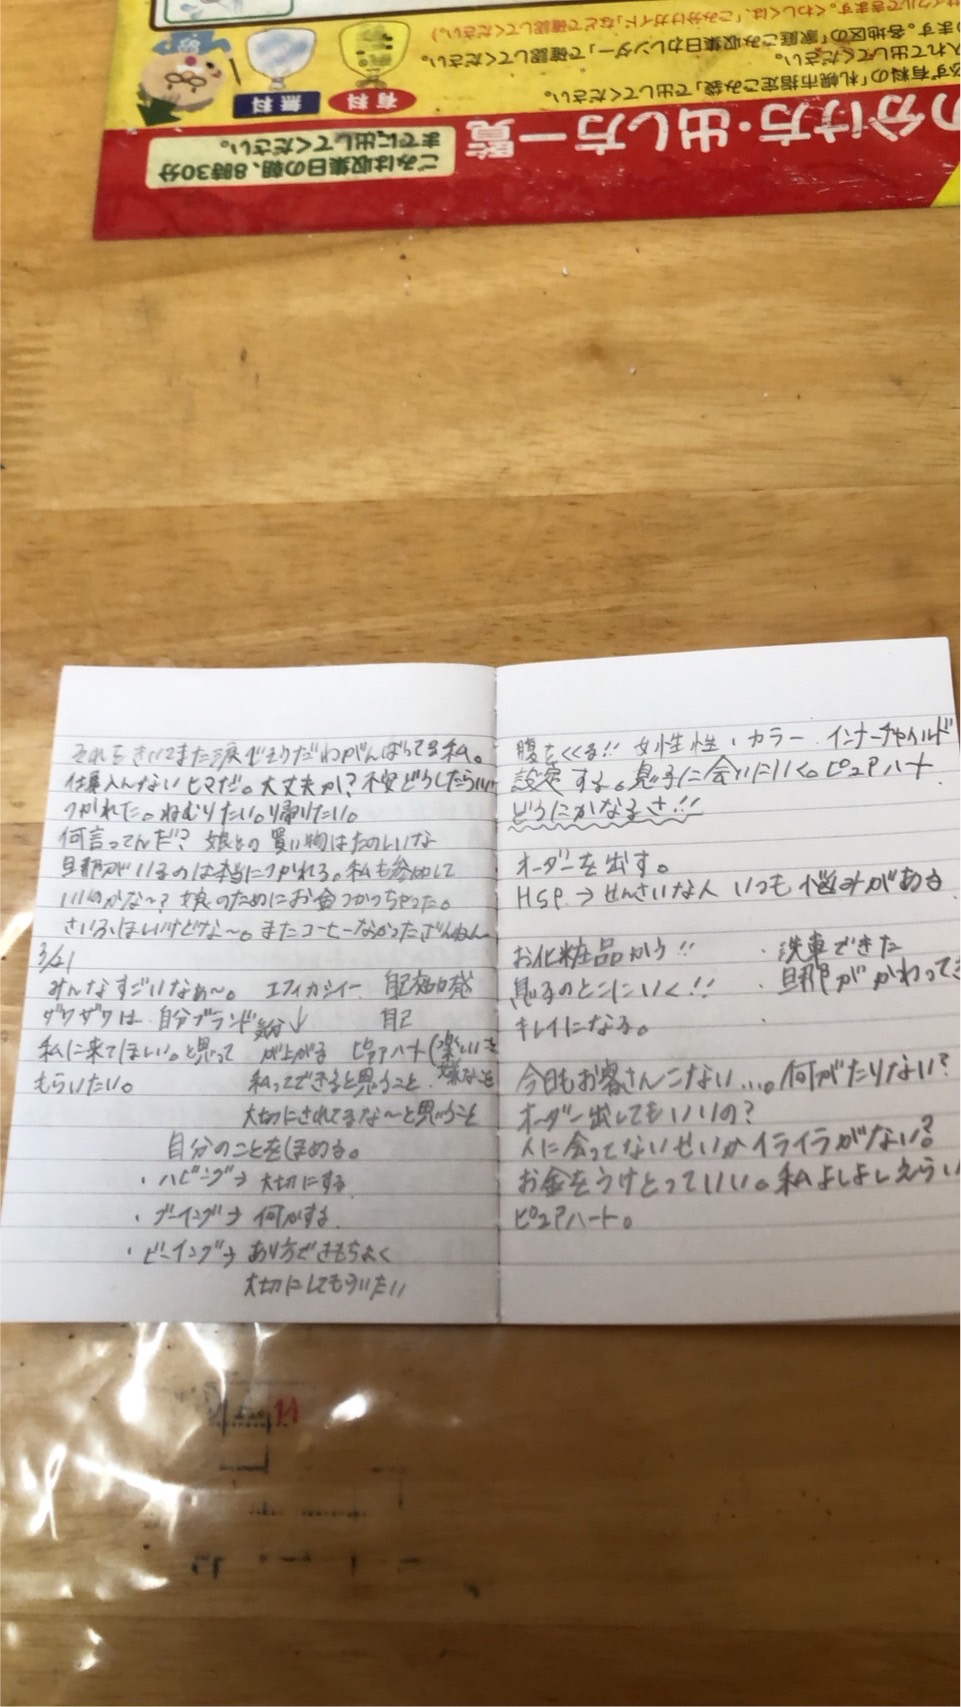 の分け方・出し方一覧
ごみは収集日の朝、8時30分
までに出してください。
必ず有料の「札幌市指定ごみ袋」で出してください。
入れて出してください。
ます。各地区の「家庭ごみ収集日カレンダー」で確認してください。
サイクルできます。くわしくは、「ごみ分けガイド」などで確認してください。)
有料
無料
それをきいてまた涙でそうだわがんばってる私。
仕事入んないヒマだ。大丈夫か?不安どうしたらいい
つかれた。ねむりたい。帰りたい。
何言ってんだ?娘との買い物はたのしいな
旦那がいるのは本当につかれる。私も参加して
いいのかな〜?娘のためにお金つかっちゃった。
さいふほしいけどな〜。またコーヒーなかったざんねん〜
3/21
みんなすごいなぁ〜。エフィカシー 自己
ザワザワは自分ブランド ↓ 自己
私に来てほしい。と思って が上がる ピュアハート(楽しいこと
もらいたい。 私ってできると思うこと 嫌なこと
大切にされてるな〜と思うこと
自分のことをほめる。
・ハビング→大切にする
・ドーイング→何かする
・ビーイング→あり方できもちよく
大切にしてもらいたい
腹をくくる!!女性性・カラー インナーチャイルド
設定する。息子に会いにいく。ピュアハート
どうにかなるさ!!
オーダーを出す。
HSP→せんさいな人 いつも悩みがある
お化粧品かう!! ・洗車できた
息子のとこにいく!! ・旦那がかわってき
キレイになる。 ・
今日もお客さんこない…。何がたりない?
オーダー出してもいいの?
人に会ってないせいかイライラがない?
お金をうけとっていい。私よしよしえらい
ピュアハート。